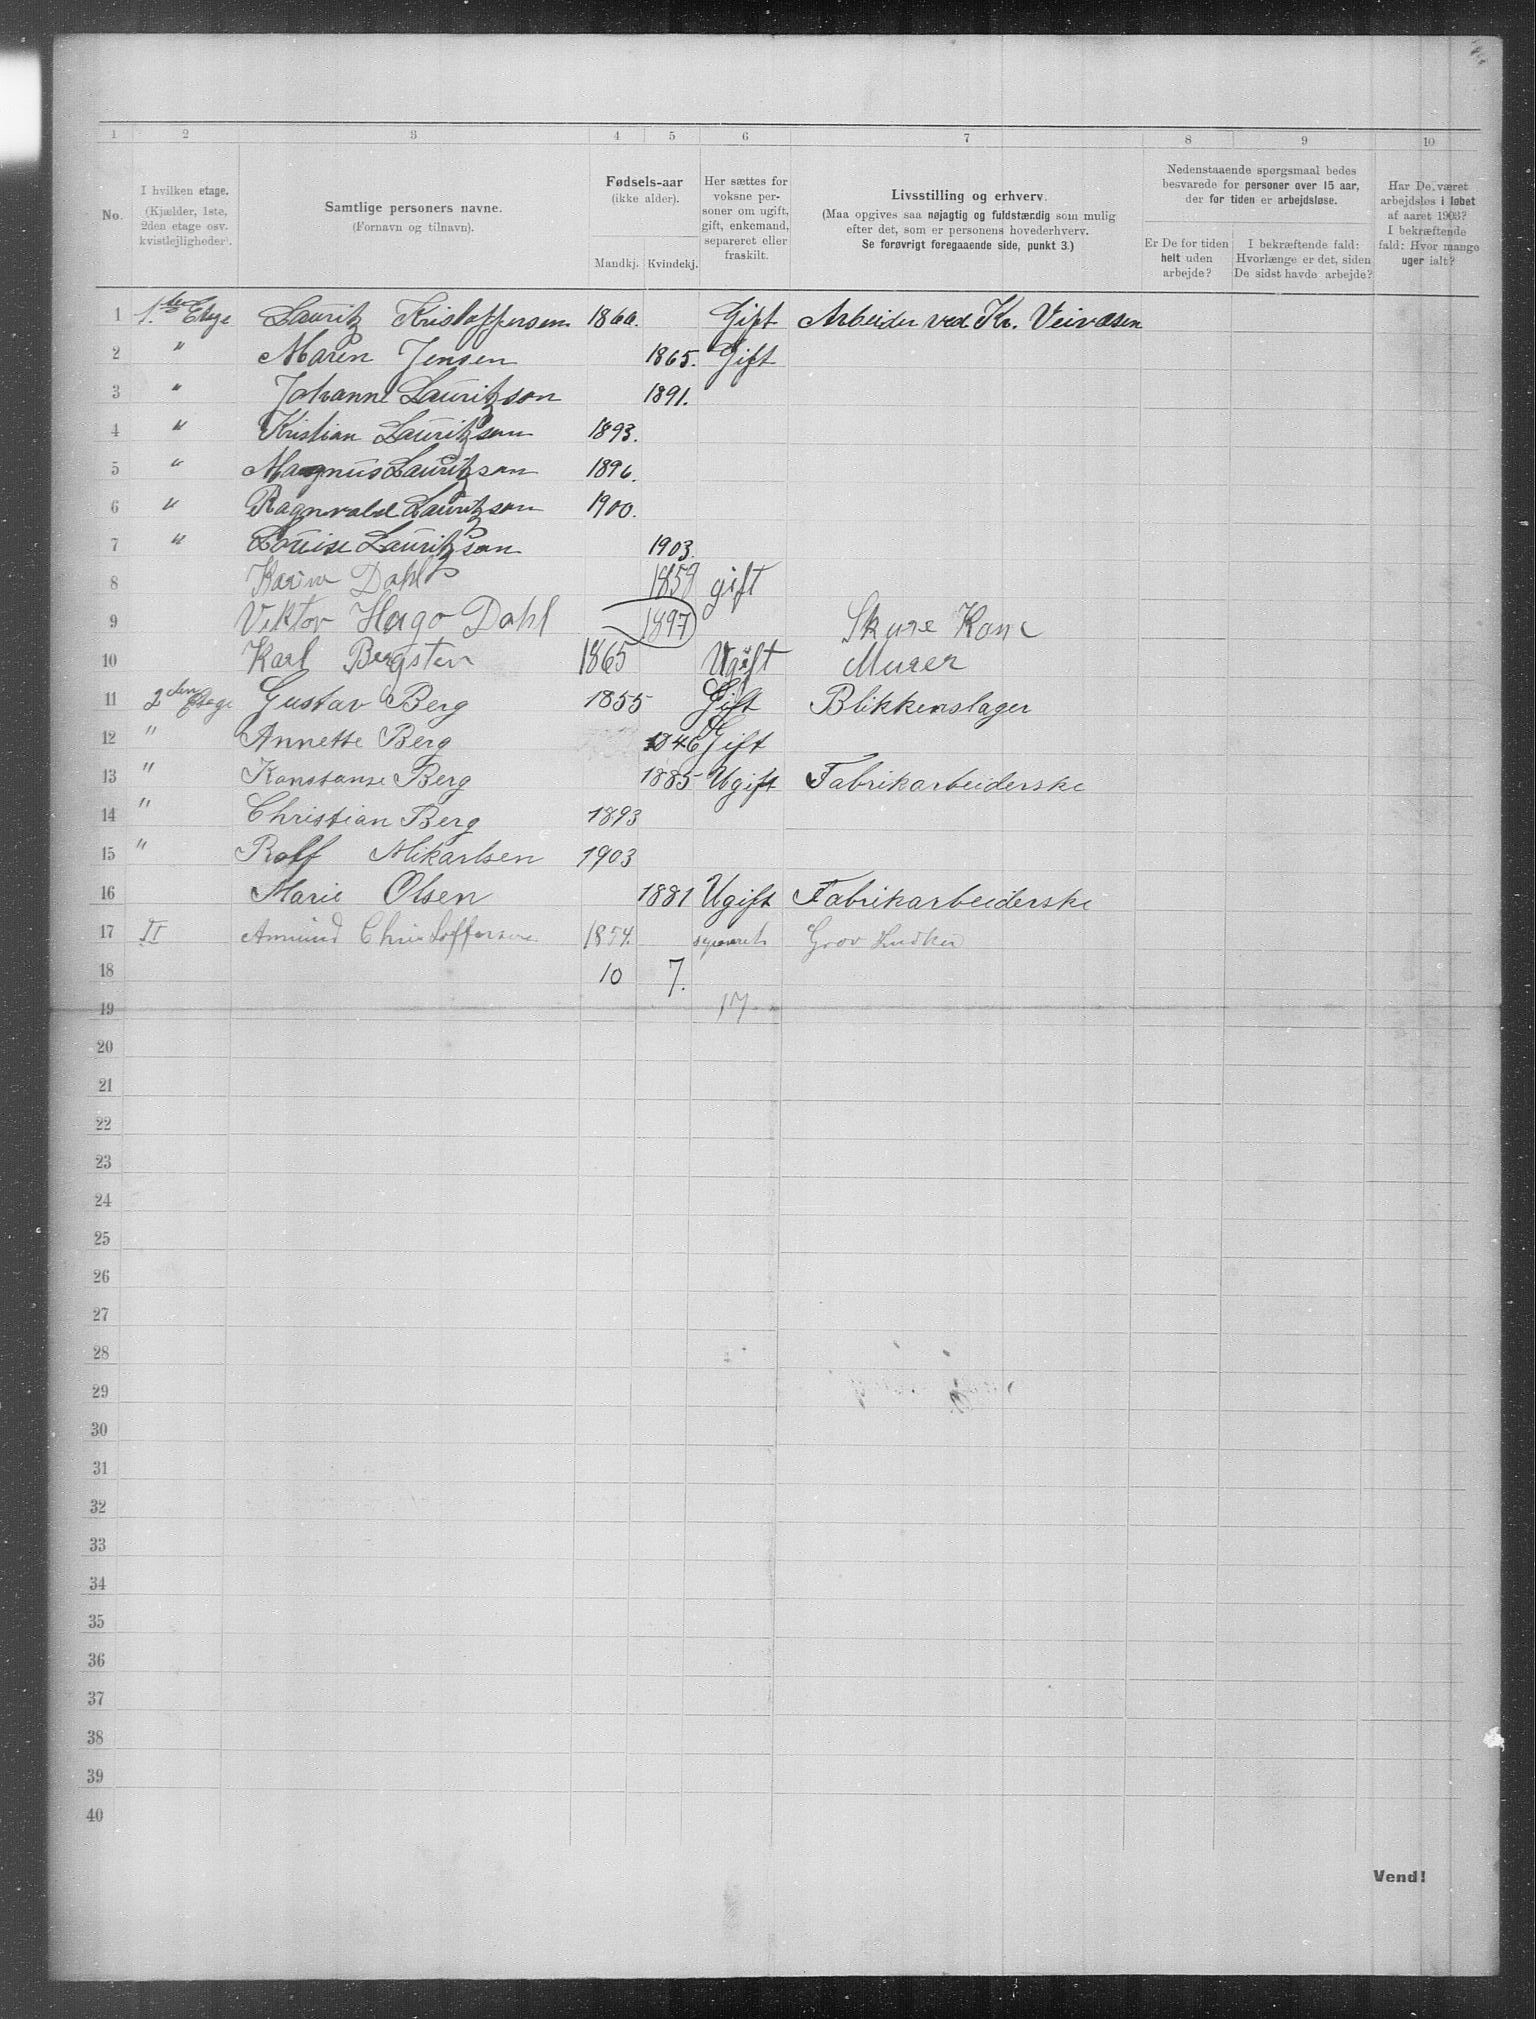 1 2 3 4 5 6 7 8 9 10
No.
I hvilken etage.
(Kjælder, 1ste,
2den etage osv.
kvistlejligheder).
Samtlige personers navne.
(Fornavn og tilnavn).
Fødsels-aar
(ikke alder).
Mandkj. Kvindekj.
Her sættes for
voksne per-
soner om ugift,
gift, enkemand,
separeret eller
fraskilt.
Livsstilling og erhverv.
(Maa opgives saa nøjagtig og fuldstændig som mulig
efter det, som er personens hovederhverv.
Se forøvrigt foregaaende side, punkt 3.)
Nedenstaaende spørgsmaal bedes
besvarede for personer over 15 aar,
der for tiden er arbejdsløse.
Er De for tiden
helt uden
arbejde?
I bekræftende fald:
Hvorlænge er det, siden
De sidst havde arbejde?
Har De været
arbejdsløs i løbet
af aaret 1903?
I bekræftende
fald: Hvor mange
uger ialt?
1 1.ste Etage Lauritz Kristoffersen 1860. Gift Arbeider ved Kr. Veivæsen
2 " Maren Jensen 1865. Gift
3 " Johanne Lauritzson 1891.
4 " Kristian Lauritzson 1893.
5 " Magnus Lauritzson 1896.
6 " Ragnvald Lauritzson 1900.
7 " Louise Lauritzson 1903.
8 Karin Dahl 1859 gift
9 Viktor Hugo Dahl 1897 Skure Kone
10 Karl Bergsten 1865 Ugift Murer
11 2den Etage Gustav Berg 1855 Gift Blikkenslager
12 " Annette Berg 1846 Gift
13 " Konstanse Berg 1885 Ugift Fabrikarbeiderske
14 " Christian Berg 1893
15 " Rolf Mikarlsen 1903
16 Marie Olsen 1881 Ugift Fabrikarbeiderske
17 II Amund Christoffersen 1854. separeret Grov
18 10 7.
19 17
20
21
22
23
24
25
26
27
28
29
30
31
32
33
34
35
36
37
38
39
40
Vend!